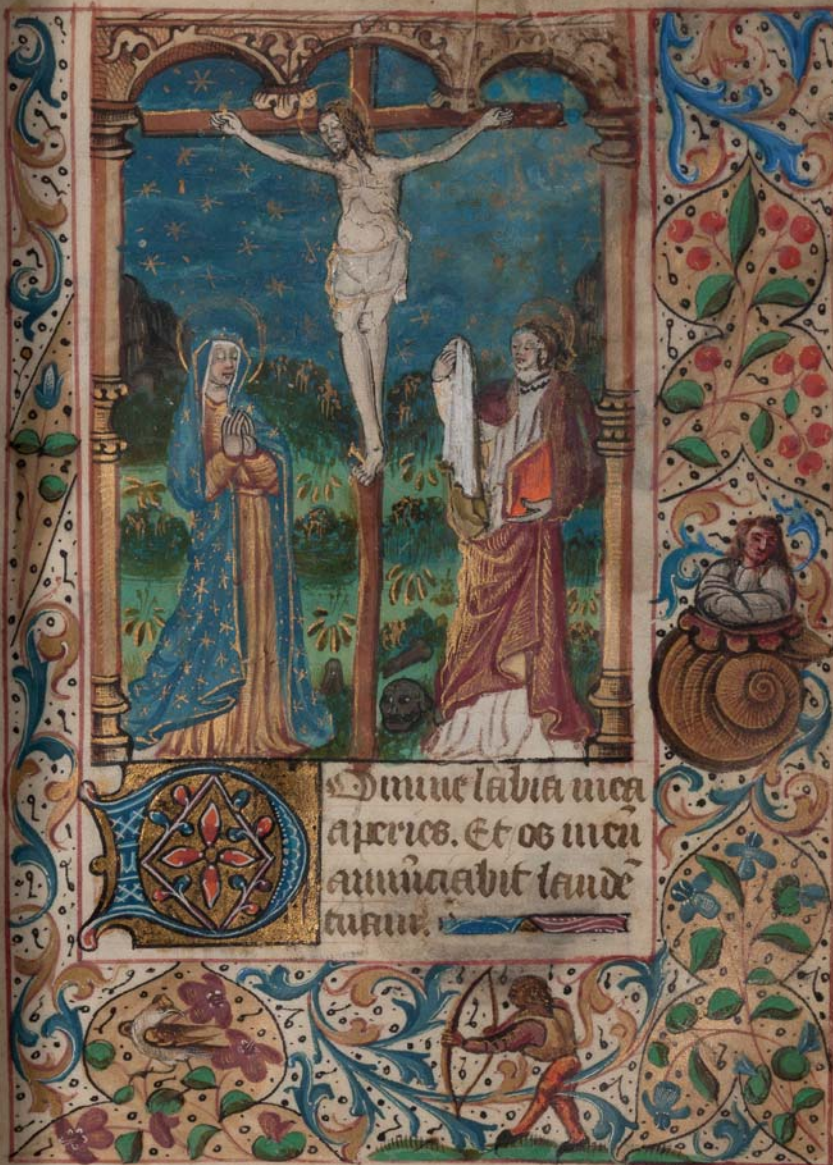 Domine labia mea
aperies. Et os meū
annūciabit laudē
tuam.